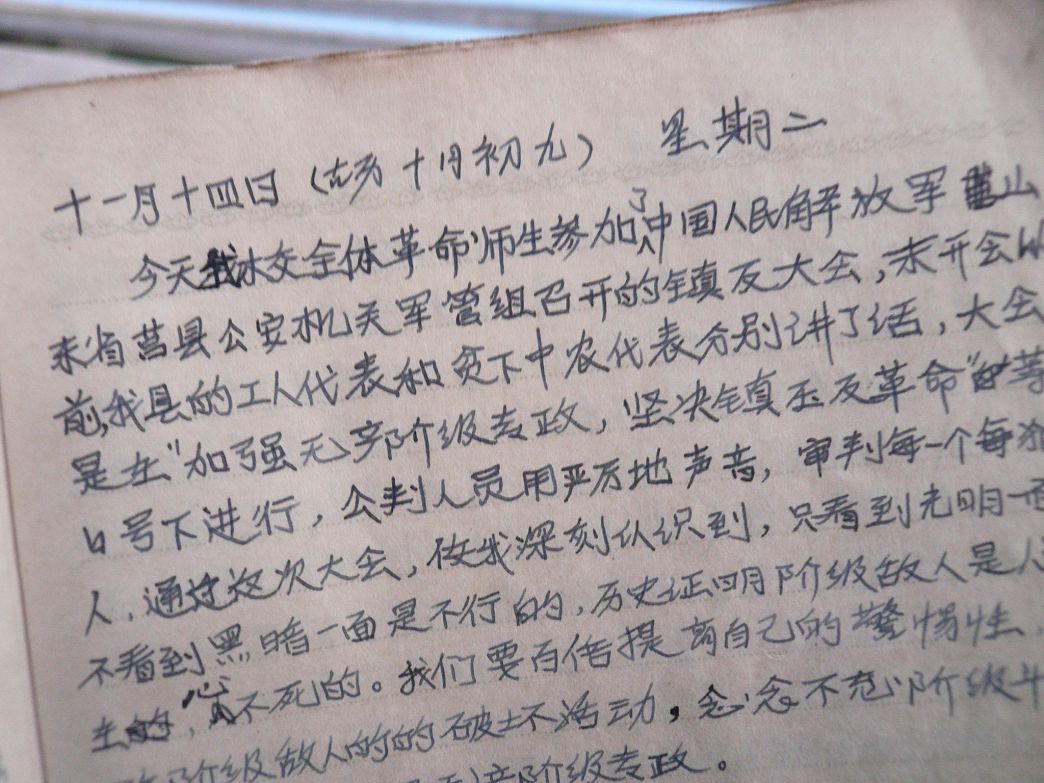 十一月十四日（古历十月初九） 星期二
今天我校全体革命师生参加了中国人民解放军山
东省莒县公安机关军管组召开的镇反大会，未开会以
前，我县的工人代表和贫下中农代表分别讲了话，大会
是在“加强无产阶级专政，坚决镇压反革命”等
口号下进行，公判人员用严厉地声音，审判每一个每
人，通过这次大会，使我深刻认识到，只看到光明一面
不看到黑暗一面是不行的，历史证明阶级敌人是人
生的，心不死的。我们要百倍提高自己的警惕性，
阶级敌人的的破坏活动，念念不忘阶级斗
产阶级专政。